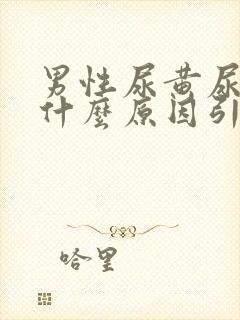 男性尿黄尿
什麼原因引
哈里